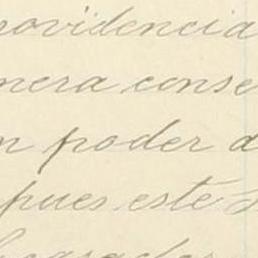 rovidencia
nera conse
n poder d
pues este